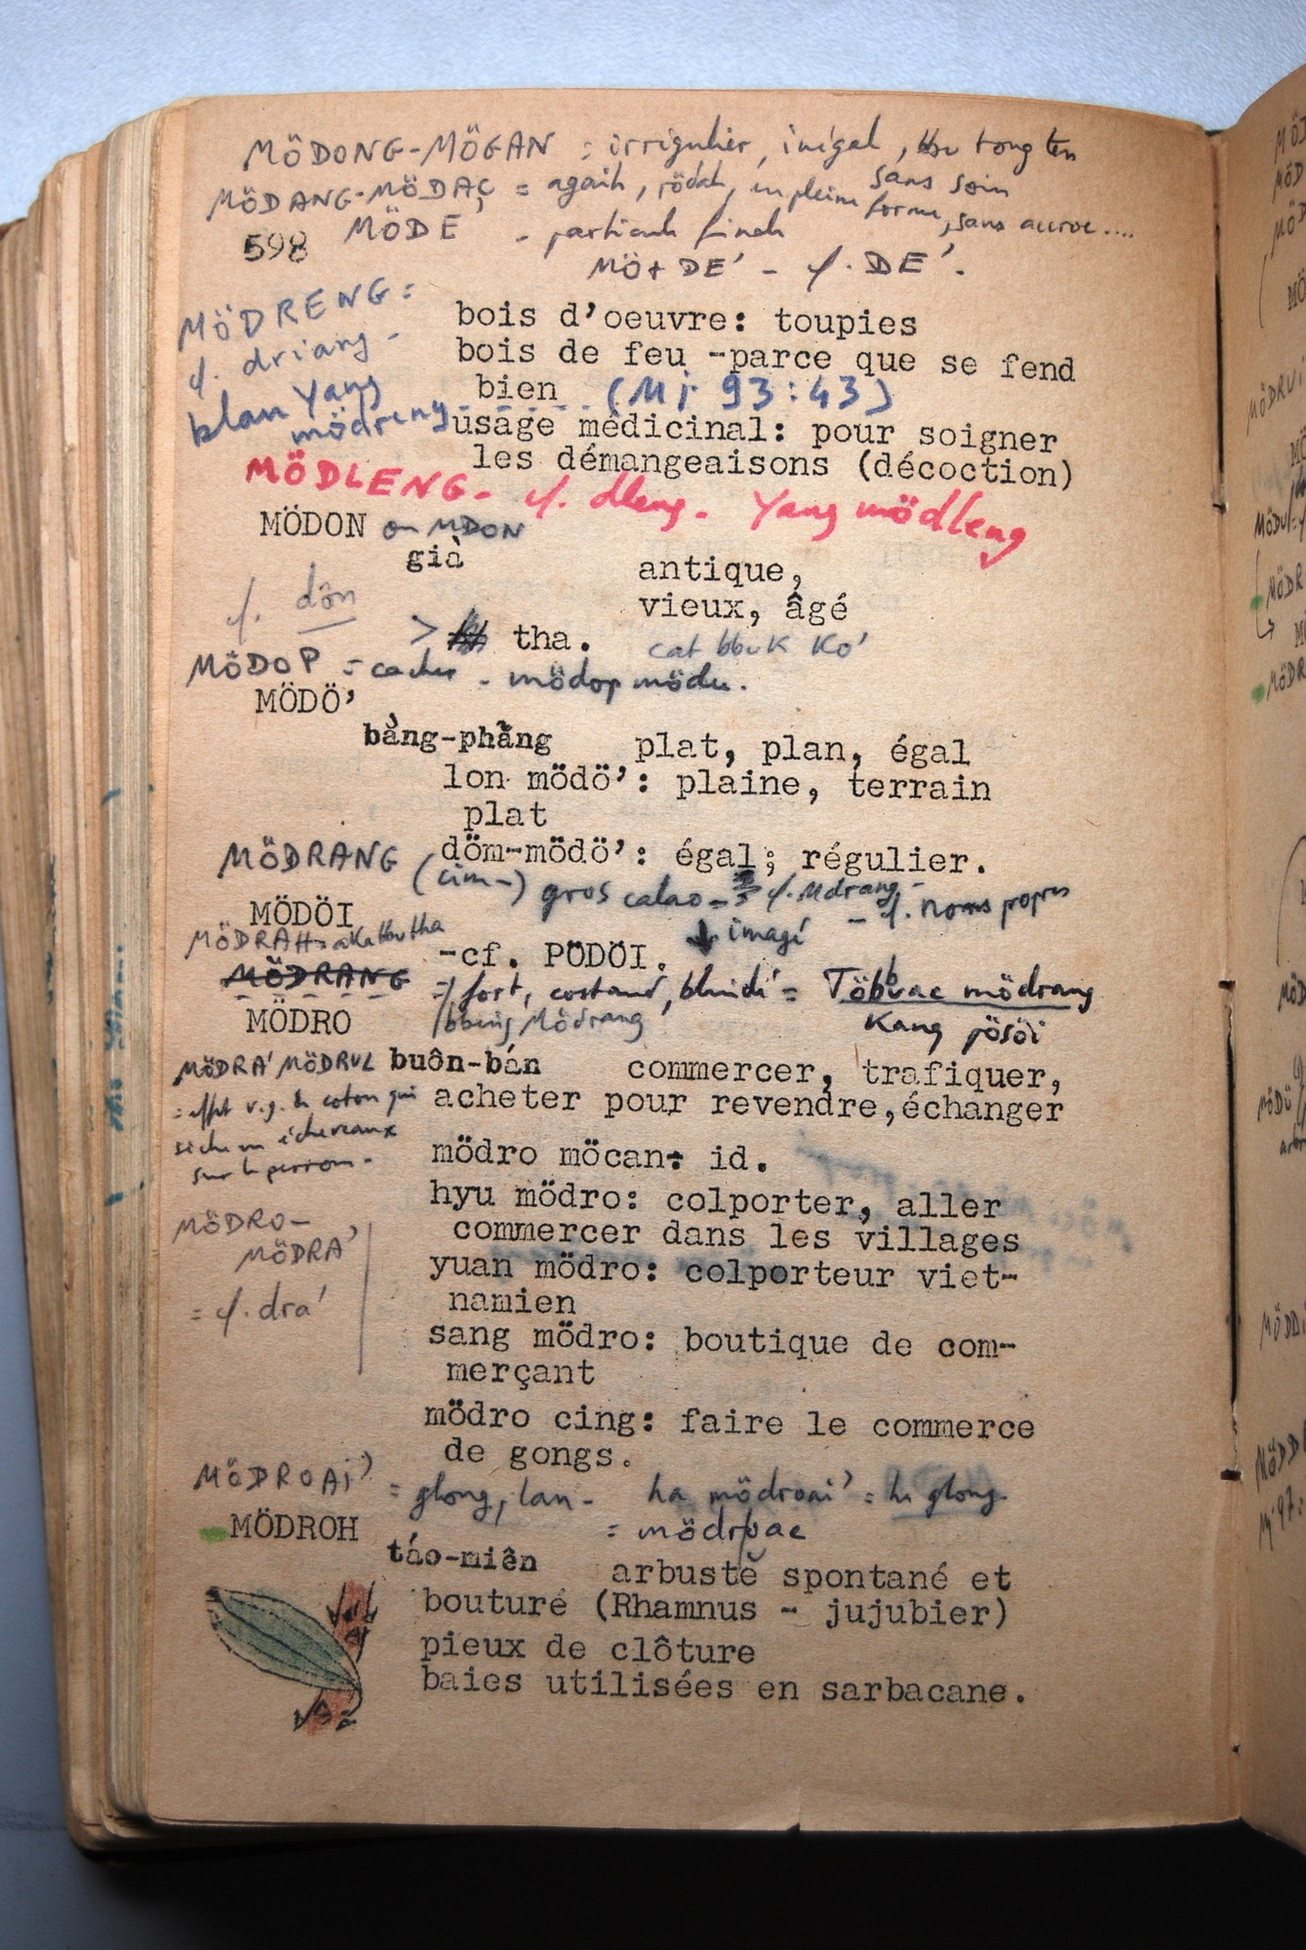 MÖDONG-MÖGAN = irrégulier, inégal, bbu tong ten
sans soin
MÖDANG-MÖDAÇ = agaih, rödah, en pleine forme, sans accroc....
598 MÖDE' - particule finale
MÖ + DE' - cf. DE'.
MÖDRENG =
cf. driang -
blan Yang
mödreng
bois d'oeuvre: toupies
bois de feu -parce que se fend
bien (Mj. 93:43)
usage médicinal: pour soigner
les démangeaisons (décoction)
MÖDLENG - cf. dleng. Yang mödleng
MÖDON ou MDON
già antique,
vieux, âgé
cf. dôn
> tha. cat bbuk Ko'
MÖDOP = cacher - mödop mödu.
MÖDÖ'
bằng-phẳng plat, plan, égal
lon mödö': plaine, terrain
plat
döm-mödö': égal; régulier.
MÖDRANG (cim-) gros calao - cf. Mdrang -
- cf. noms propres
imagé
MÖDÖI
MÖDRAH
-cf. PÖDÖI.
MÖDRANG = fort, costaud, blindé = Töbvac mödrang
bbung Mödrang Kang jösöi
MÖDRO
buôn-bán commercer, trafiquer,
acheter pour revendre, échanger
MÖDRA' MÖDRUL
= effet v.g. de coton qui
sèche en écheveaux
sur le perron -
mödro möcan: id.
hyu mödro: colporter, aller
commercer dans les villages
yuan mödro: colporteur viet-
namien
sang mödro: boutique de com-
merçant
MÖDRO-
MÖDRA'
= cf. dra'
mödro cing: faire le commerce
de gongs.
MÖDROAI' = glong, lan - ha mödroai' = ha glong
= mödruac
MÖDROH
táo-miên arbuste spontané et
bouturé (Rhamnus - jujubier)
pieux de clôture
baies utilisées en sarbacane.